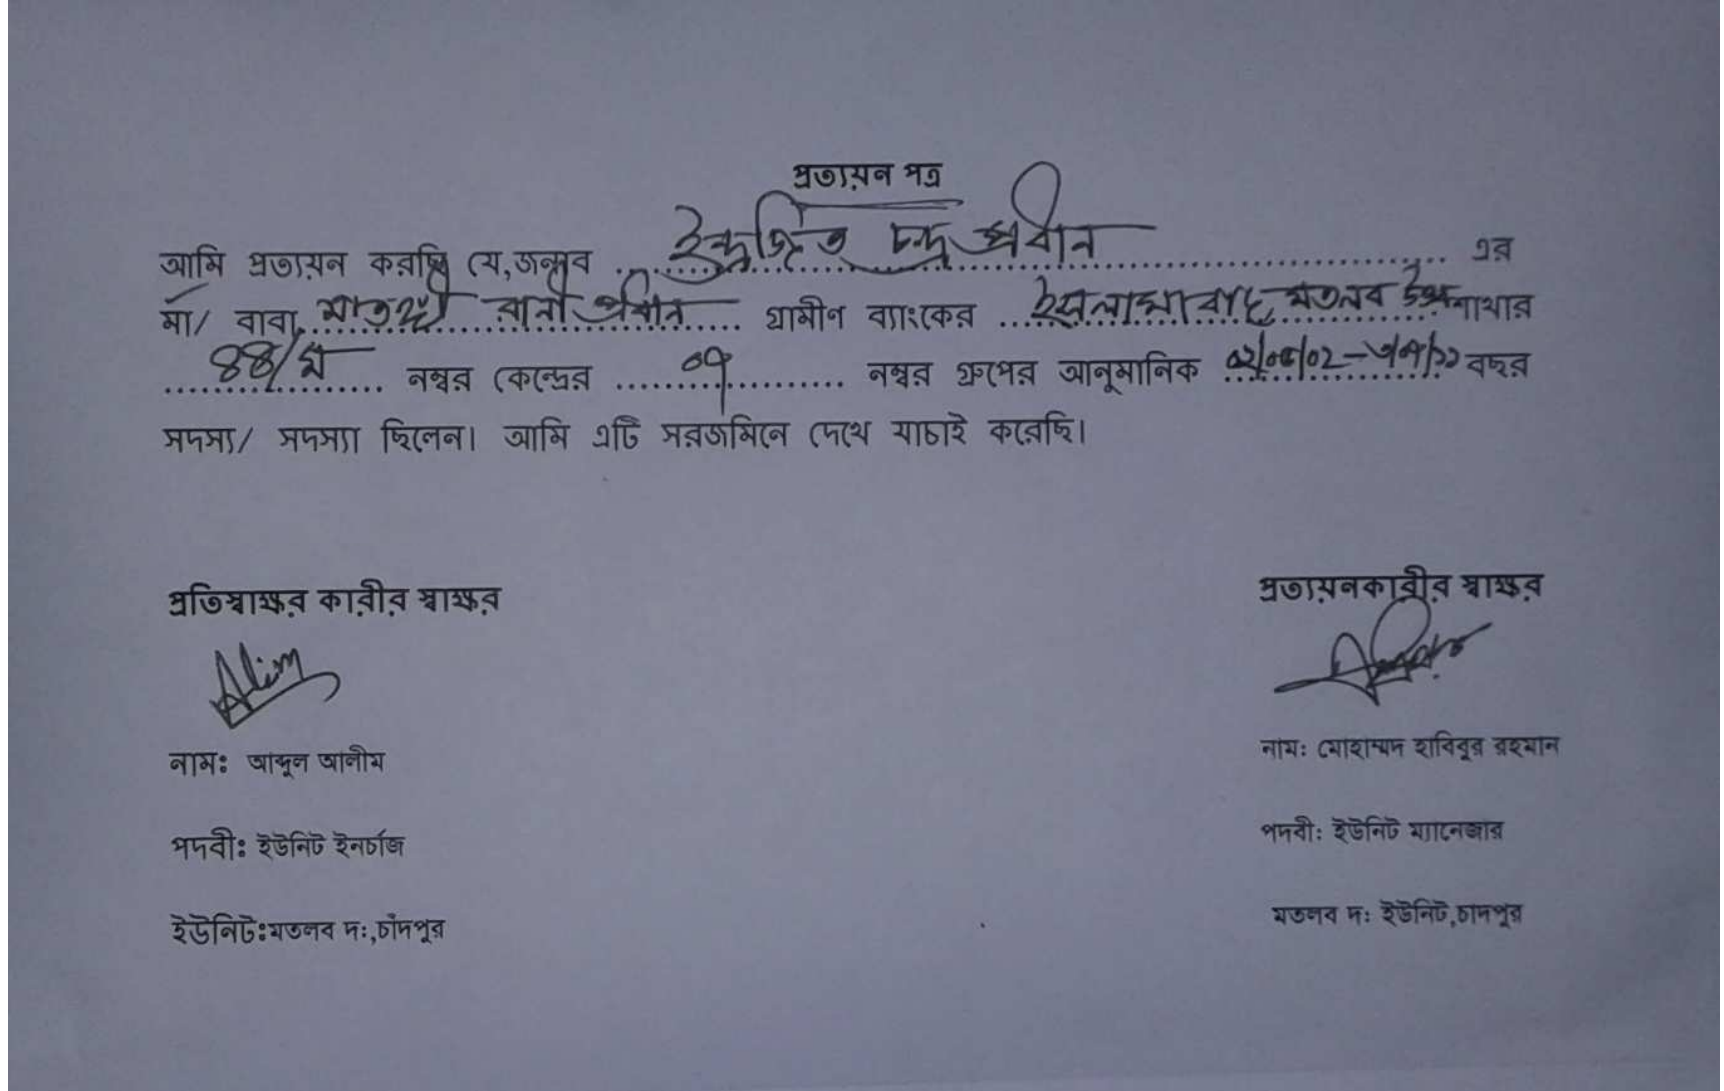 প্রত্যয়ন পত্র
আমি প্রত্যয়ন করছি যে,জনাব ইন্দ্রজিত চন্দ্র প্রধান এর
মা/ বাবা রানী প্রধান গ্রামীণ ব্যাংকের ইসলামাবাদ মতলব উঃ শাখার
৪৪/ম নম্বর কেন্দ্রের ০৭ নম্বর গ্রুপের আনুমানিক বছর
সদস্য/ সদস্যা ছিলেন। আমি এটি সরজমিনে দেখে যাচাই করেছি।
প্রতিস্বাক্ষর কারীর স্বাক্ষর
Alim
নাম: আব্দুল আলীম
পদবী: ইউনিট ইনর্চাজ
ইউনিট:মতলব দ:,চাঁদপুর
প্রত্যয়নকারীর স্বাক্ষর
নাম: মোহাম্মদ হাবিবুর রহমান
পদবী: ইউনিট ম্যানেজার
মতলব দ: ইউনিট,চাদপুর